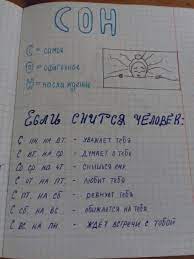 СОН
С - самое
О - офигенное
Н - наслаждение
ЕСЛИ СНИТСЯ ЧЕЛОВЕК:
С ПН. НА ВТ. - УВАЖАЕТ ТЕБЯ
С ВТ. НА СР. - ДУМАЕТ О ТЕБЕ
СО СР. НА ЧТ. - СНИШЬСЯ ЕМУ
С ЧТ. НА ПТ. - ЛЮБИТ ТЕБЯ
С ПТ. НА СБ. - РЕВНУЕТ ТЕБЯ
С СБ. НА ВС. - ОБИЖАЕТСЯ НА ТЕБЯ
С ВС. НА ПН. - ЖДЁТ ВСТРЕЧИ С ТОБОЙ